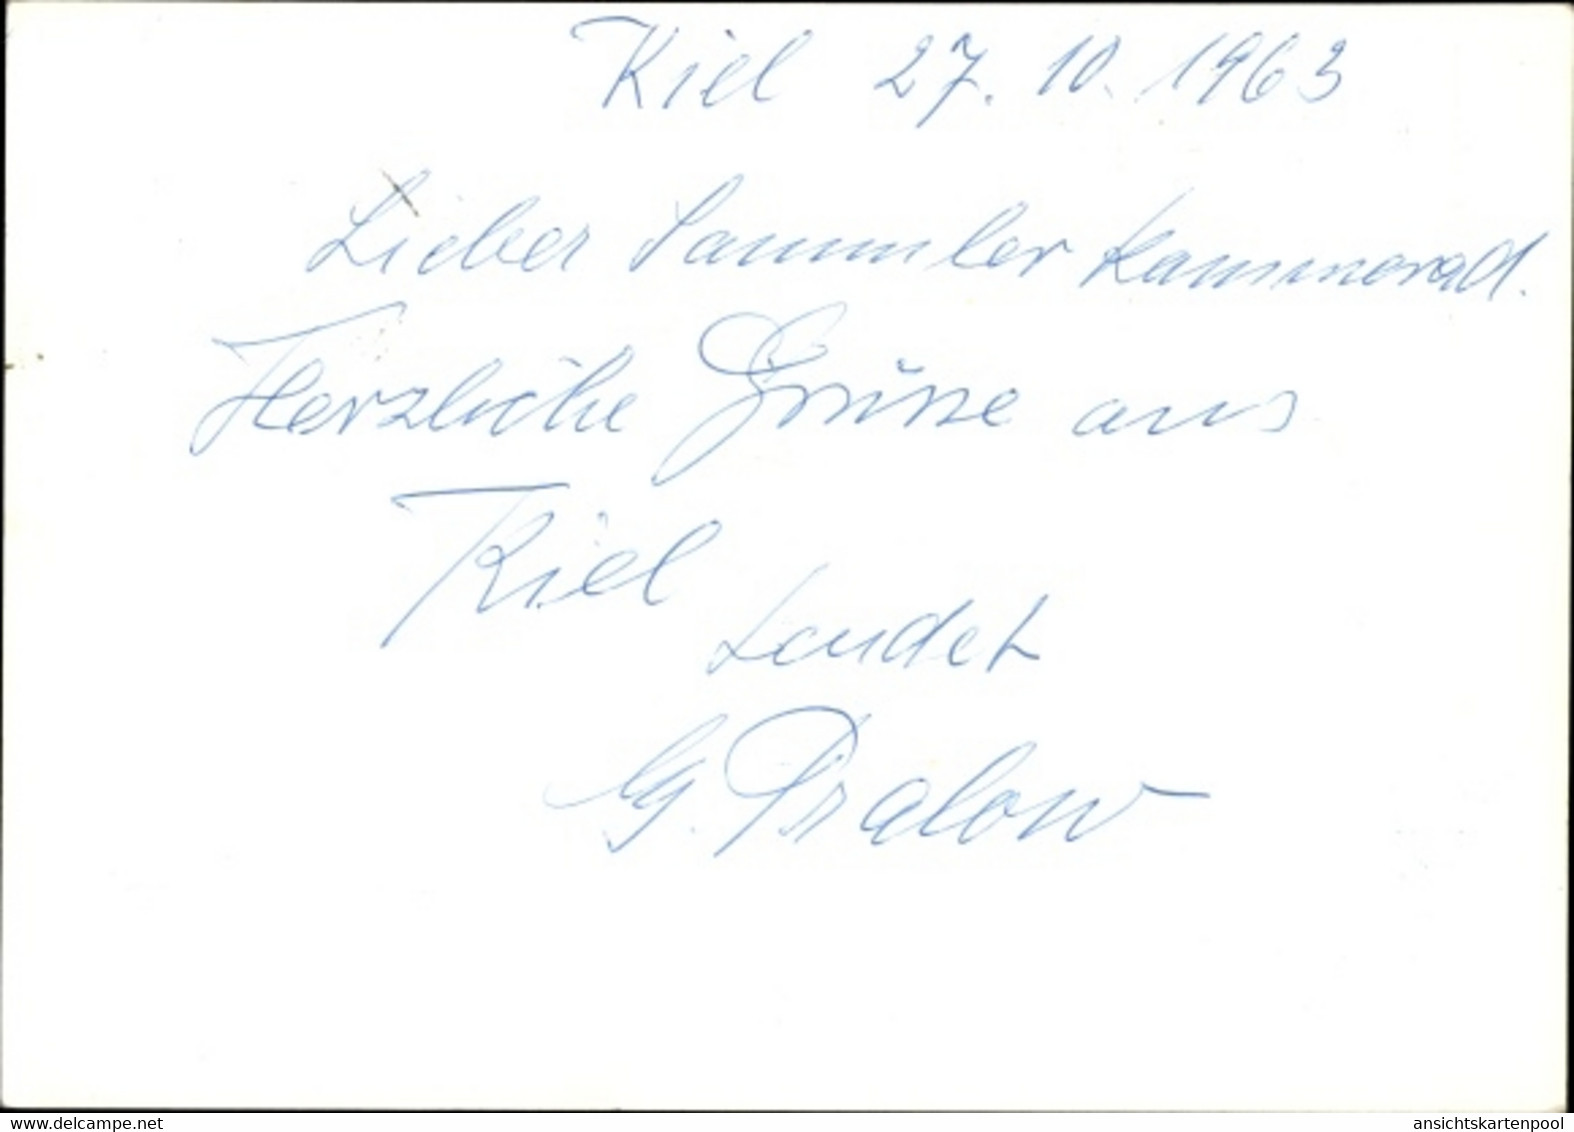 Kiel 27. 10. 1963
Lieber Sammler kammerad.
Herzliche Grüsse aus
Kiel
sendet
G. Pralow
delcampe.net
ansichtskartenpool